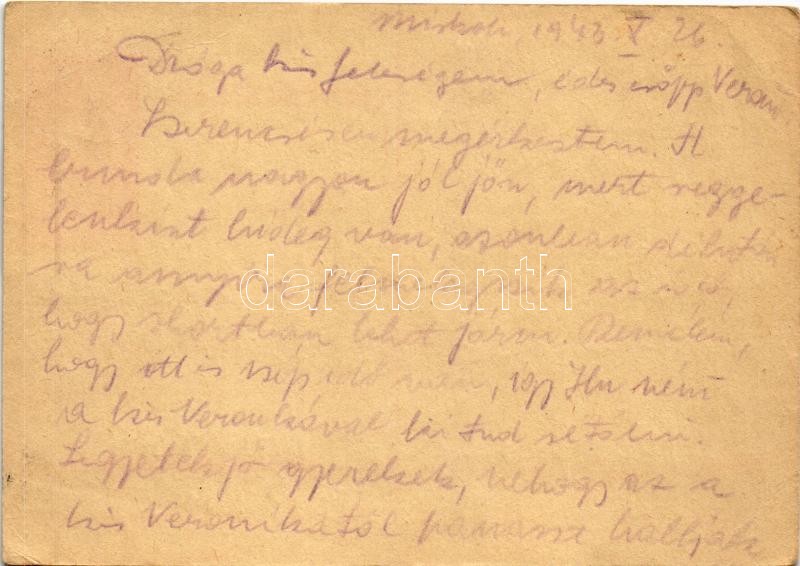 Miskolc, 1943. X 26.
Drága kis feleségem, édes csöpp Verám
Szerencsésen megérkeztem. A
bunda nagyon jól jön, mert regge-
lenkint hideg van, azonban délután
ra annyira felmelegszik az idő,
hogy shortban lehet járni. Remélem,
hogy ott is szép idő van, így Ilu néni
a kis Veronkával ki tud sétálni.
Legyetek jó gyerekek, nehogy az a
kis Veronikától panaszt halljak
darabanth